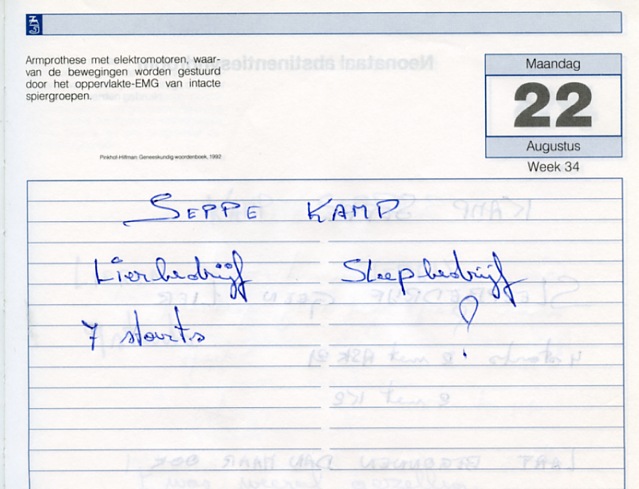 Armprothese met elektromotoren, waar-
van de bewegingen worden gestuurd
door het oppervlakte-EMG van intacte
spiergroepen.
Pinkhof-Hilfman: Geneeskundig woordenboek, 1992
Maandag
22
Augustus
Week 34
SEPPE KAMP
Lierbedrijf Sleepbedrijf
7 starts !